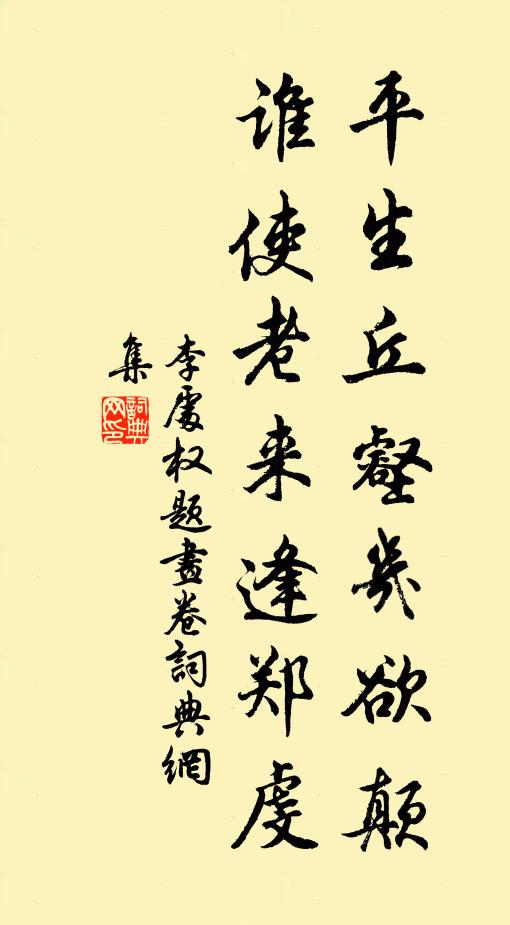 平生丘壑几欲颠
谁使老来逢郑虔
李处权题画卷词典網
集
詞典网印